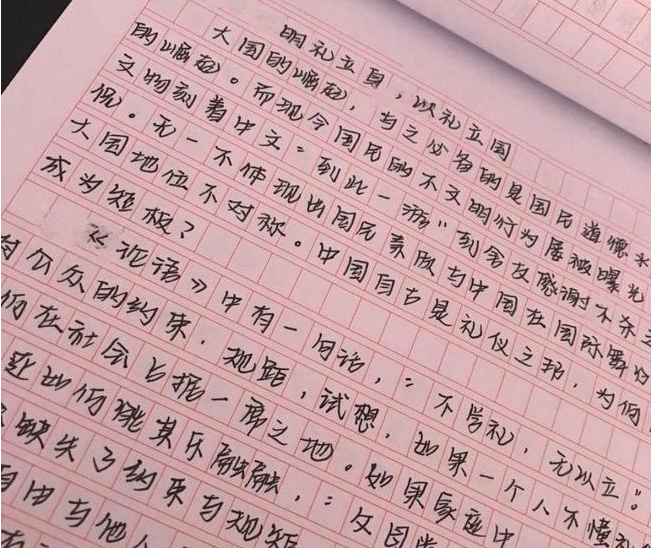 明礼立身，以礼立国
大国的崛起，与之必备的是国民道德水
的崛起。而现今国民的不文明行为屡被曝光
文物刻着中文“到此一游”到舍友感谢不杀之
况。无一不体现出国民素质与中国在国际舞
大国地位不对称。中国自古是礼仪之邦，为何
成为短板？
《论语》中有一句话，“不学礼，无以立”
对公众的约束，规矩，试想，如果一个人不懂礼
何在社会占据一席之地。如果家庭中
何能其乐融融，“父
缺失了约束与规矩
自由与他人